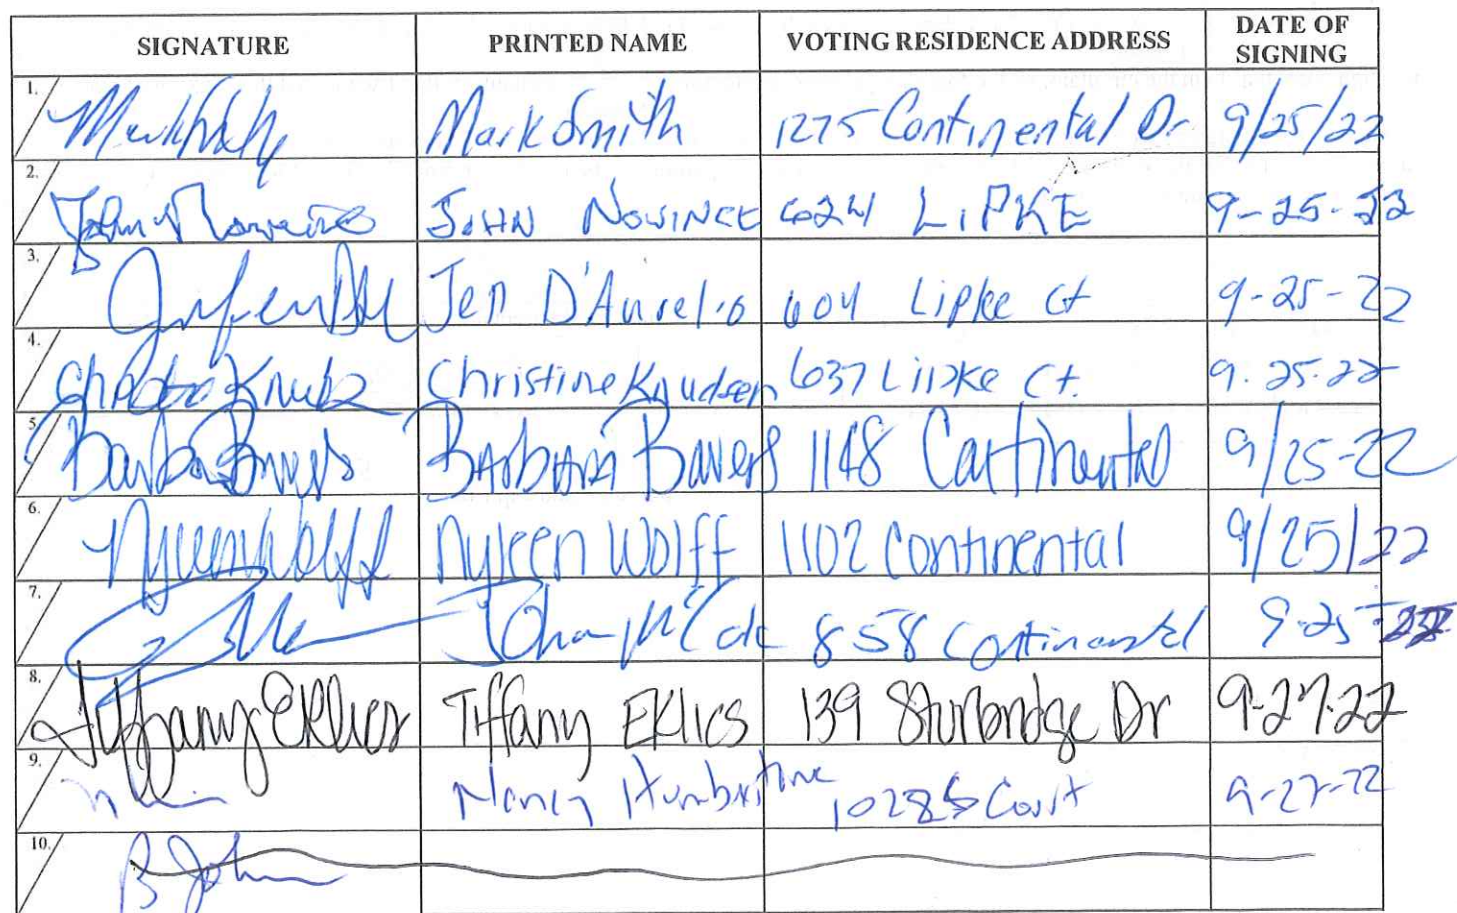 SIGNATURE PRINTED NAME VOTING RESIDENCE ADDRESS DATE OF SIGNING
1. Mark Smith 1275 Continental Dr 9/25/22
2. John JOHN NOWINCE 624 LIPKE 9-25-22
3. Jen D'Aurelio 604 Lipke Ct 9-25-22
4. Christine Knudsen 637 Lipke Ct. 9.25.22
5. Barbara Bavers 1148 Continental 9/25-22
6. Nyleen Wolff Nyleen Wolff 1102 Continental 9/25/22
7. 858 Continental 9-25-22
8. Tiffany Eklics Tiffany Eklics 139 Sturbridge Dr 9-27-22
9. Nancy 1028 Court 9-27-22
10. B John